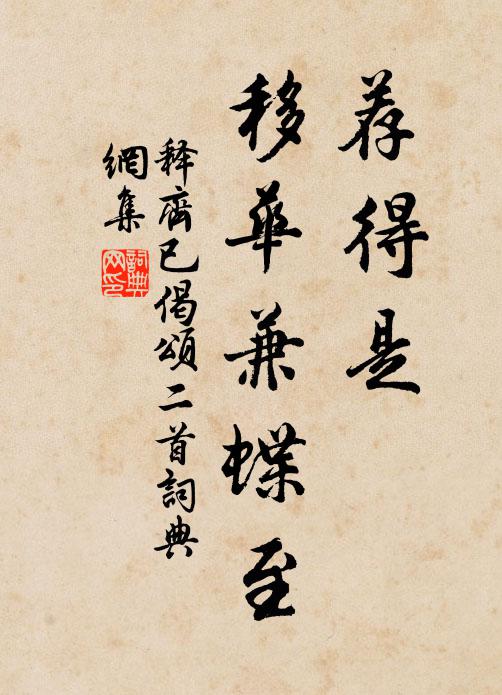 荐得是
移華兼蝶至
释齊已偈頌二首詞典
網集
詞典
网印